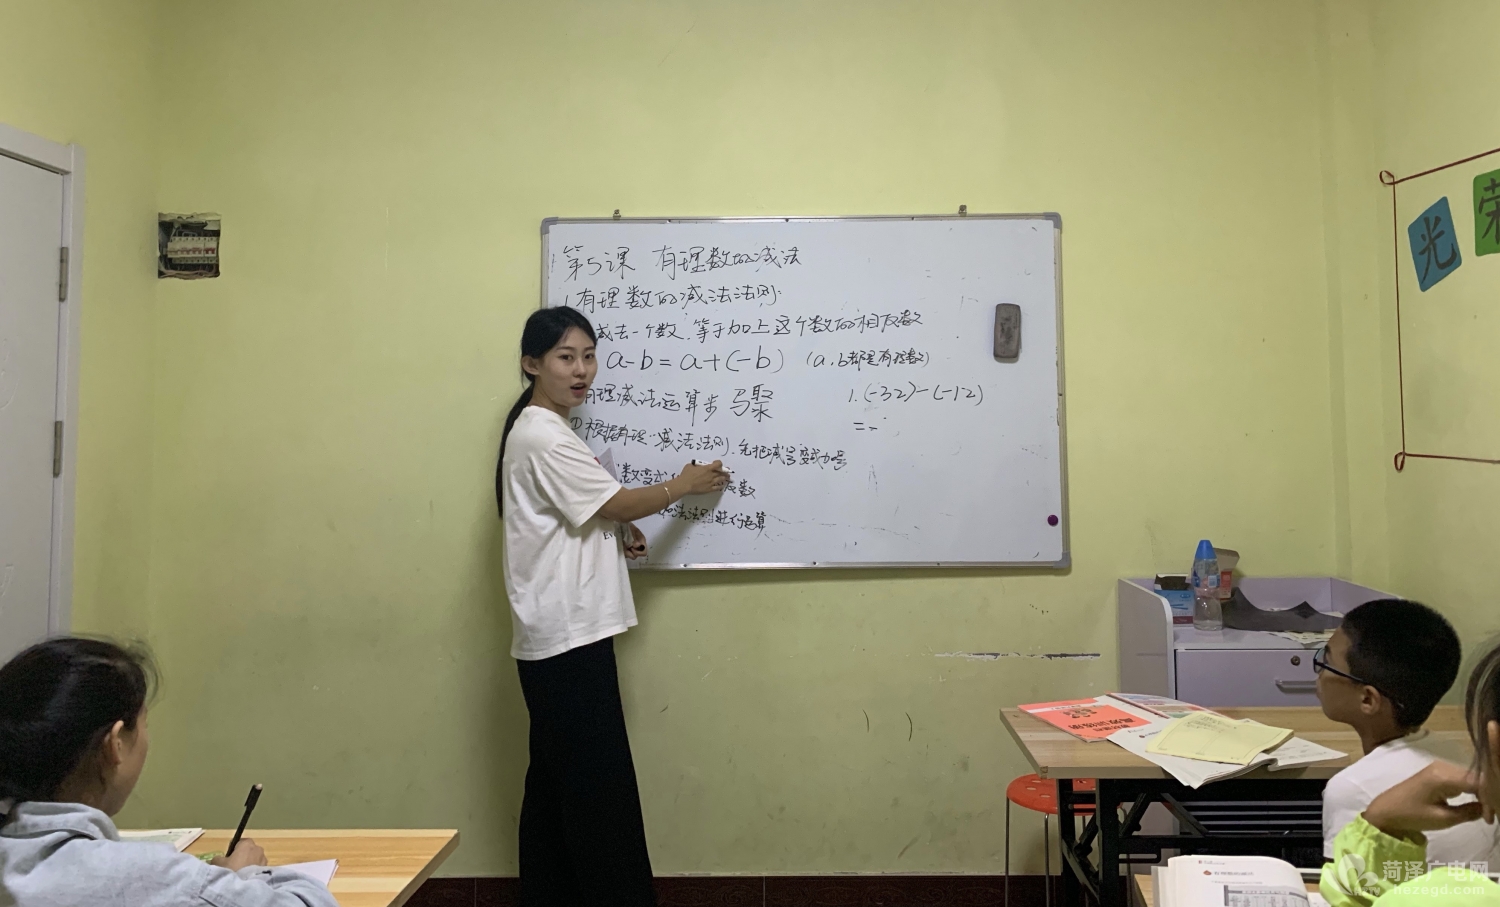 第5课 有理数的减法
1.有理数的减法法则:
减去一个数,等于加上这个数的相反数
a-b=a+(-b) (a,b都是有理数)
有理减法运算步骤
1.(-32)-(-12)
=-
①根据有理减法法则,先把减号变成加号
数变成 反数
加法法则进行运算
光
荣
菏泽广电网
hezegd.com